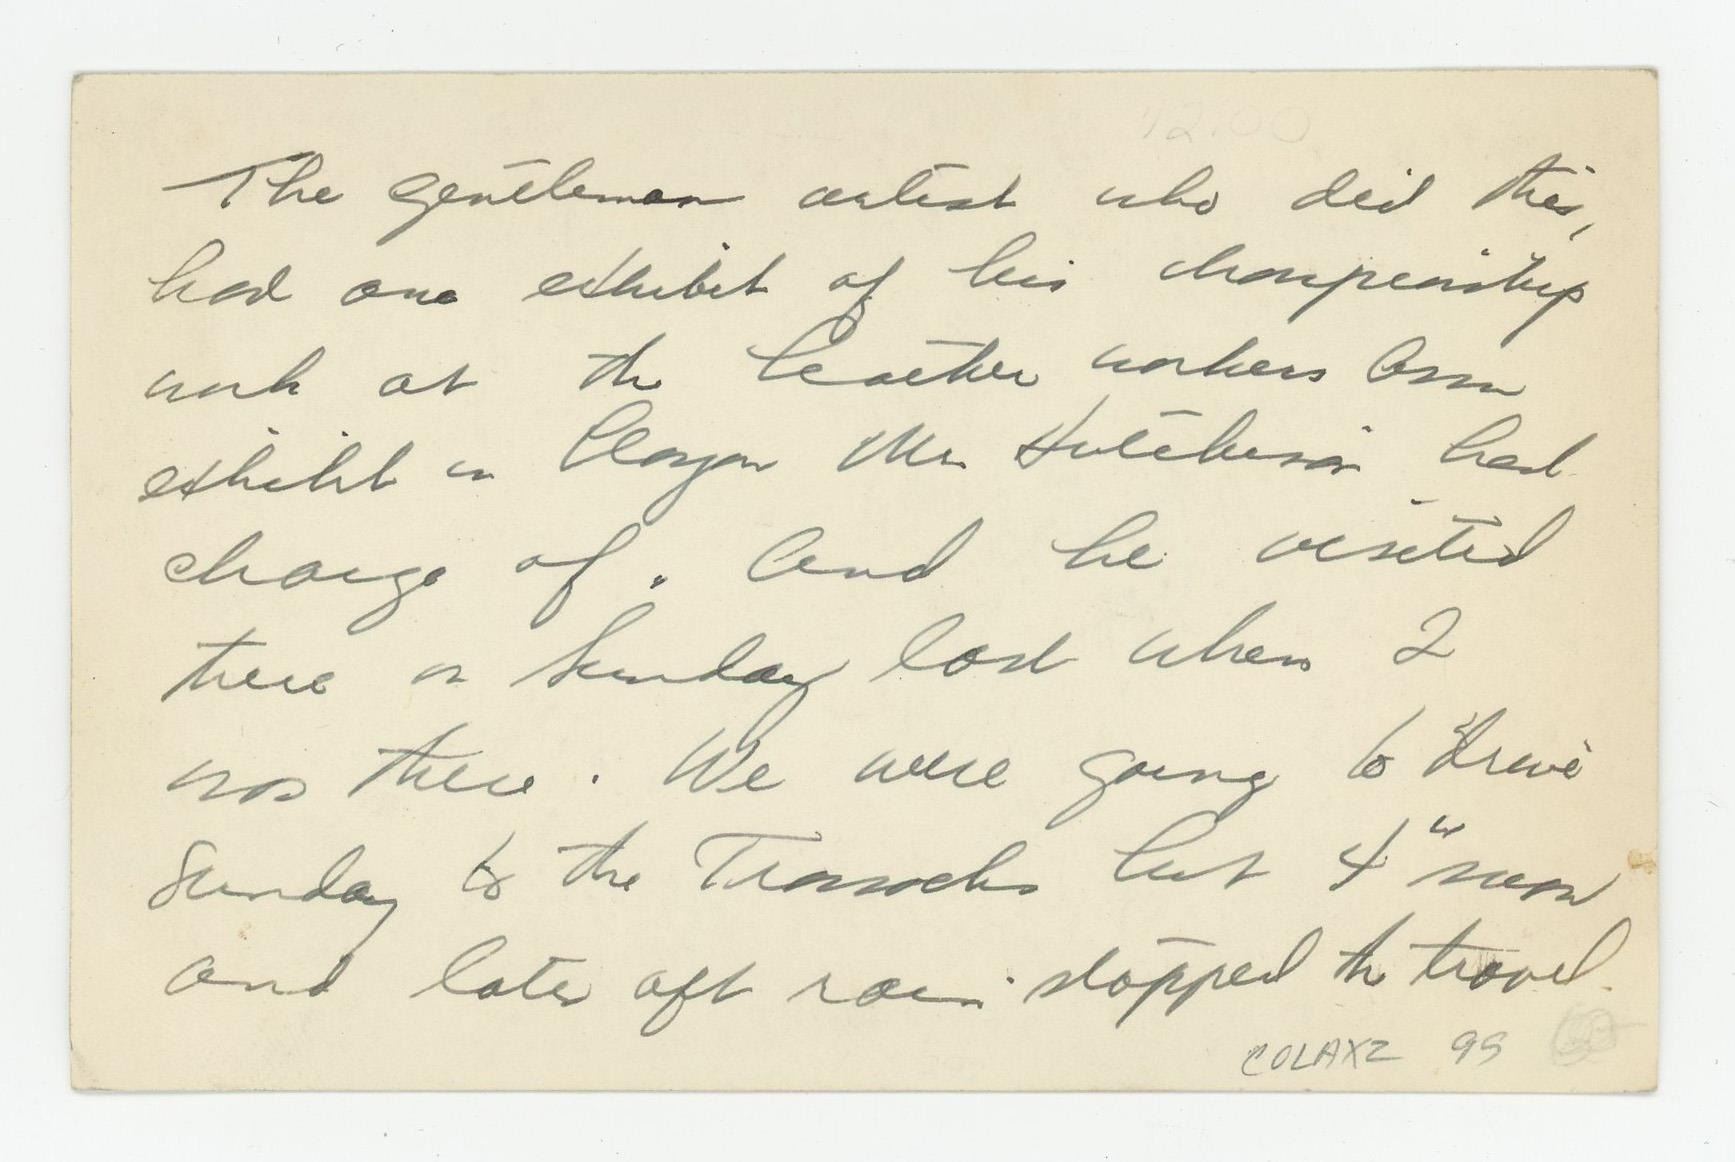 12.00
The gentleman artist who did this,
had one exhibit of his championship
work at the leather workers Assn
exhibit in Glasgow Mr. Hutchison had
charge of. And he visited
there on Sunday last when I
was there. We were going to drive
Sunday to the Trossachs but 4" snow
and later aft rain stopped the travel.
COLAXZ 99